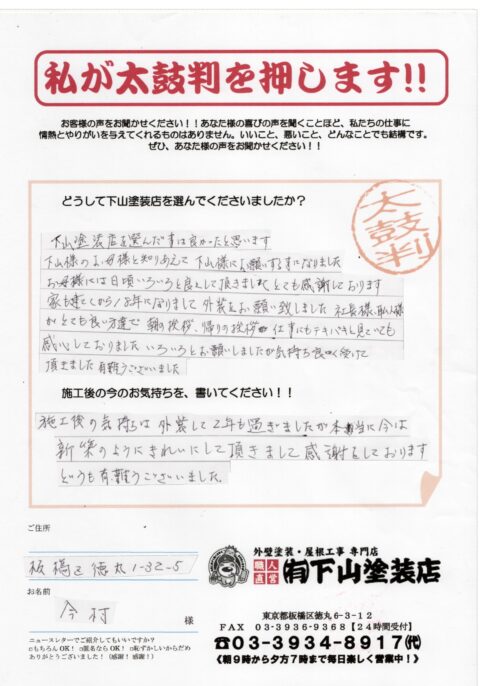 私が太鼓判を押します!!
お客様の声をお聞かせください！！あなた様の喜びの声を聞くことほど、私たちの仕事に
情熱とやりがいを与えてくれるものはありません。いいこと、悪いこと、どんなことでも結構です。
ぜひ、あなた様の声をお聞かせください！！
どうして下山塗装店を選んでくださいましたか？
太鼓判
下山塗装店を選んだ事は良かったと思います
下山様のお母様と知りあえて下山様にお願いする事になりました
お母様には日頃いろいろと良として頂きましてとても感謝しております
家も建てから18年になりまして外装をお願い致しました 社長様、職人様
がとても良い方達で 朝の挨拶、帰りの挨拶 仕事にもテキパキし見ていても
感心しておりました いろいろとお願いしましたが気持ち良く受けて
頂きました有難うございました
施工後の今のお気持ちを、書いてください！！
施工後の気持ちは外装して2年も過ぎましたが本当に今は
新築のようにきれいにして頂きまして感謝をしております
どうも有難うございました。
ご住所
板橋区徳丸1-32-5
お名前
今村 様
ニュースレターでご紹介してもいいですか？
□もちろんOK！ □匿名ならOK！ □恥ずかしいからだめ
ありがとうございました！（感謝！感謝！）
外壁塗装・屋根工事 専門店
職人直営 ㈲下山塗装店
東京都板橋区徳丸6-3-12
FAX 03-3936-9368【24時間受付】
☎03-3934-8917㈹
《朝9時から夕方7時まで毎日楽しく営業中！》